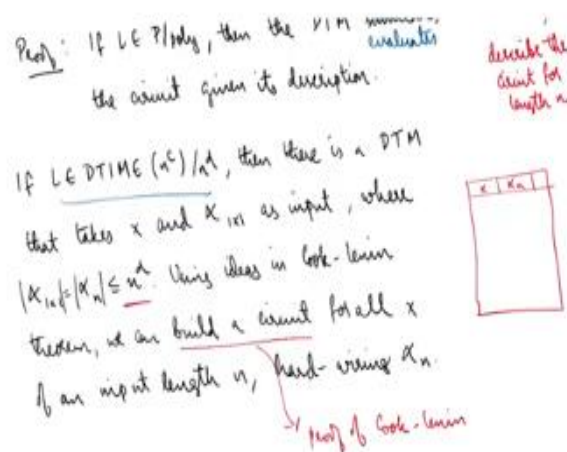 Proof: If L∈ P/poly, then the DTM
evaluates
the circuit given its description.
describe the
circuit for
length n
If L∈ DTIME(n^c)/n^d, then there is a DTM
that takes x and α_|x| as input, where
|α_|x||=|α_n| ≤ n^d. Using ideas in Cook-Levin
theorem, we can build a circuit for all x
of an input length n, hard-wiring α_n.
x | α_n
proof of Cook-Levin